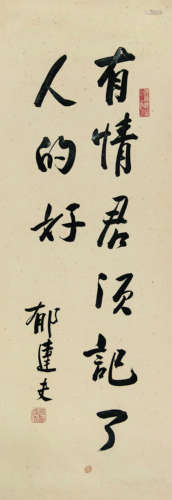 有情君须记了
人的好
郁達夫